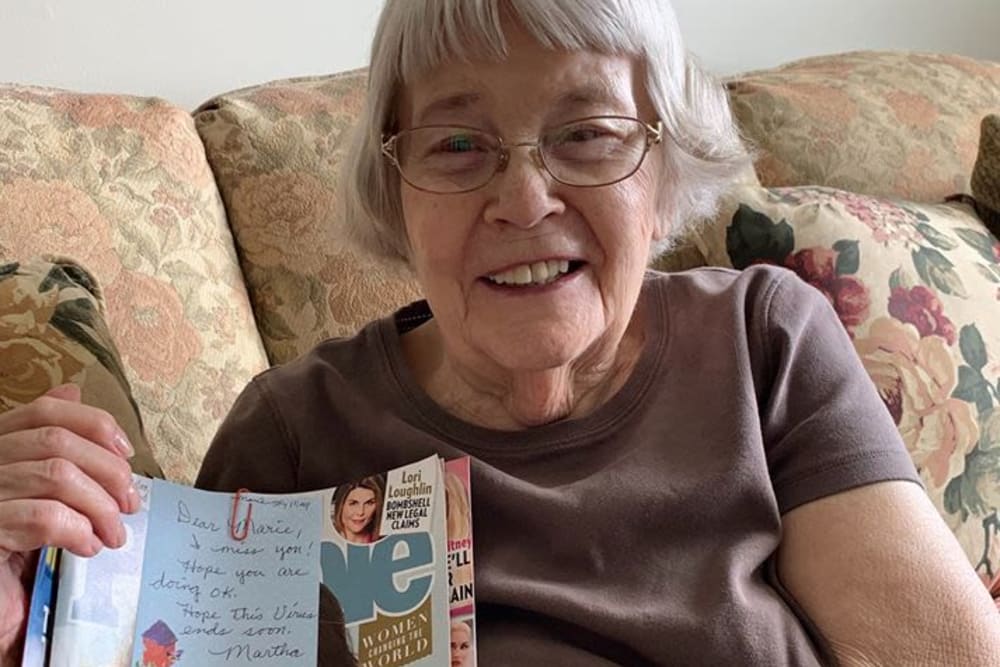 Dear Marie,
I miss you!
Hope you are
doing OK.
Hope this Virus
ends soon.
Martha
Lori
Loughlin
BOMBSHELL
NEW LEGAL
CLAIMS
le
WOMEN
CHANGING THE
WORLD
itney
E'LL
R
AIN